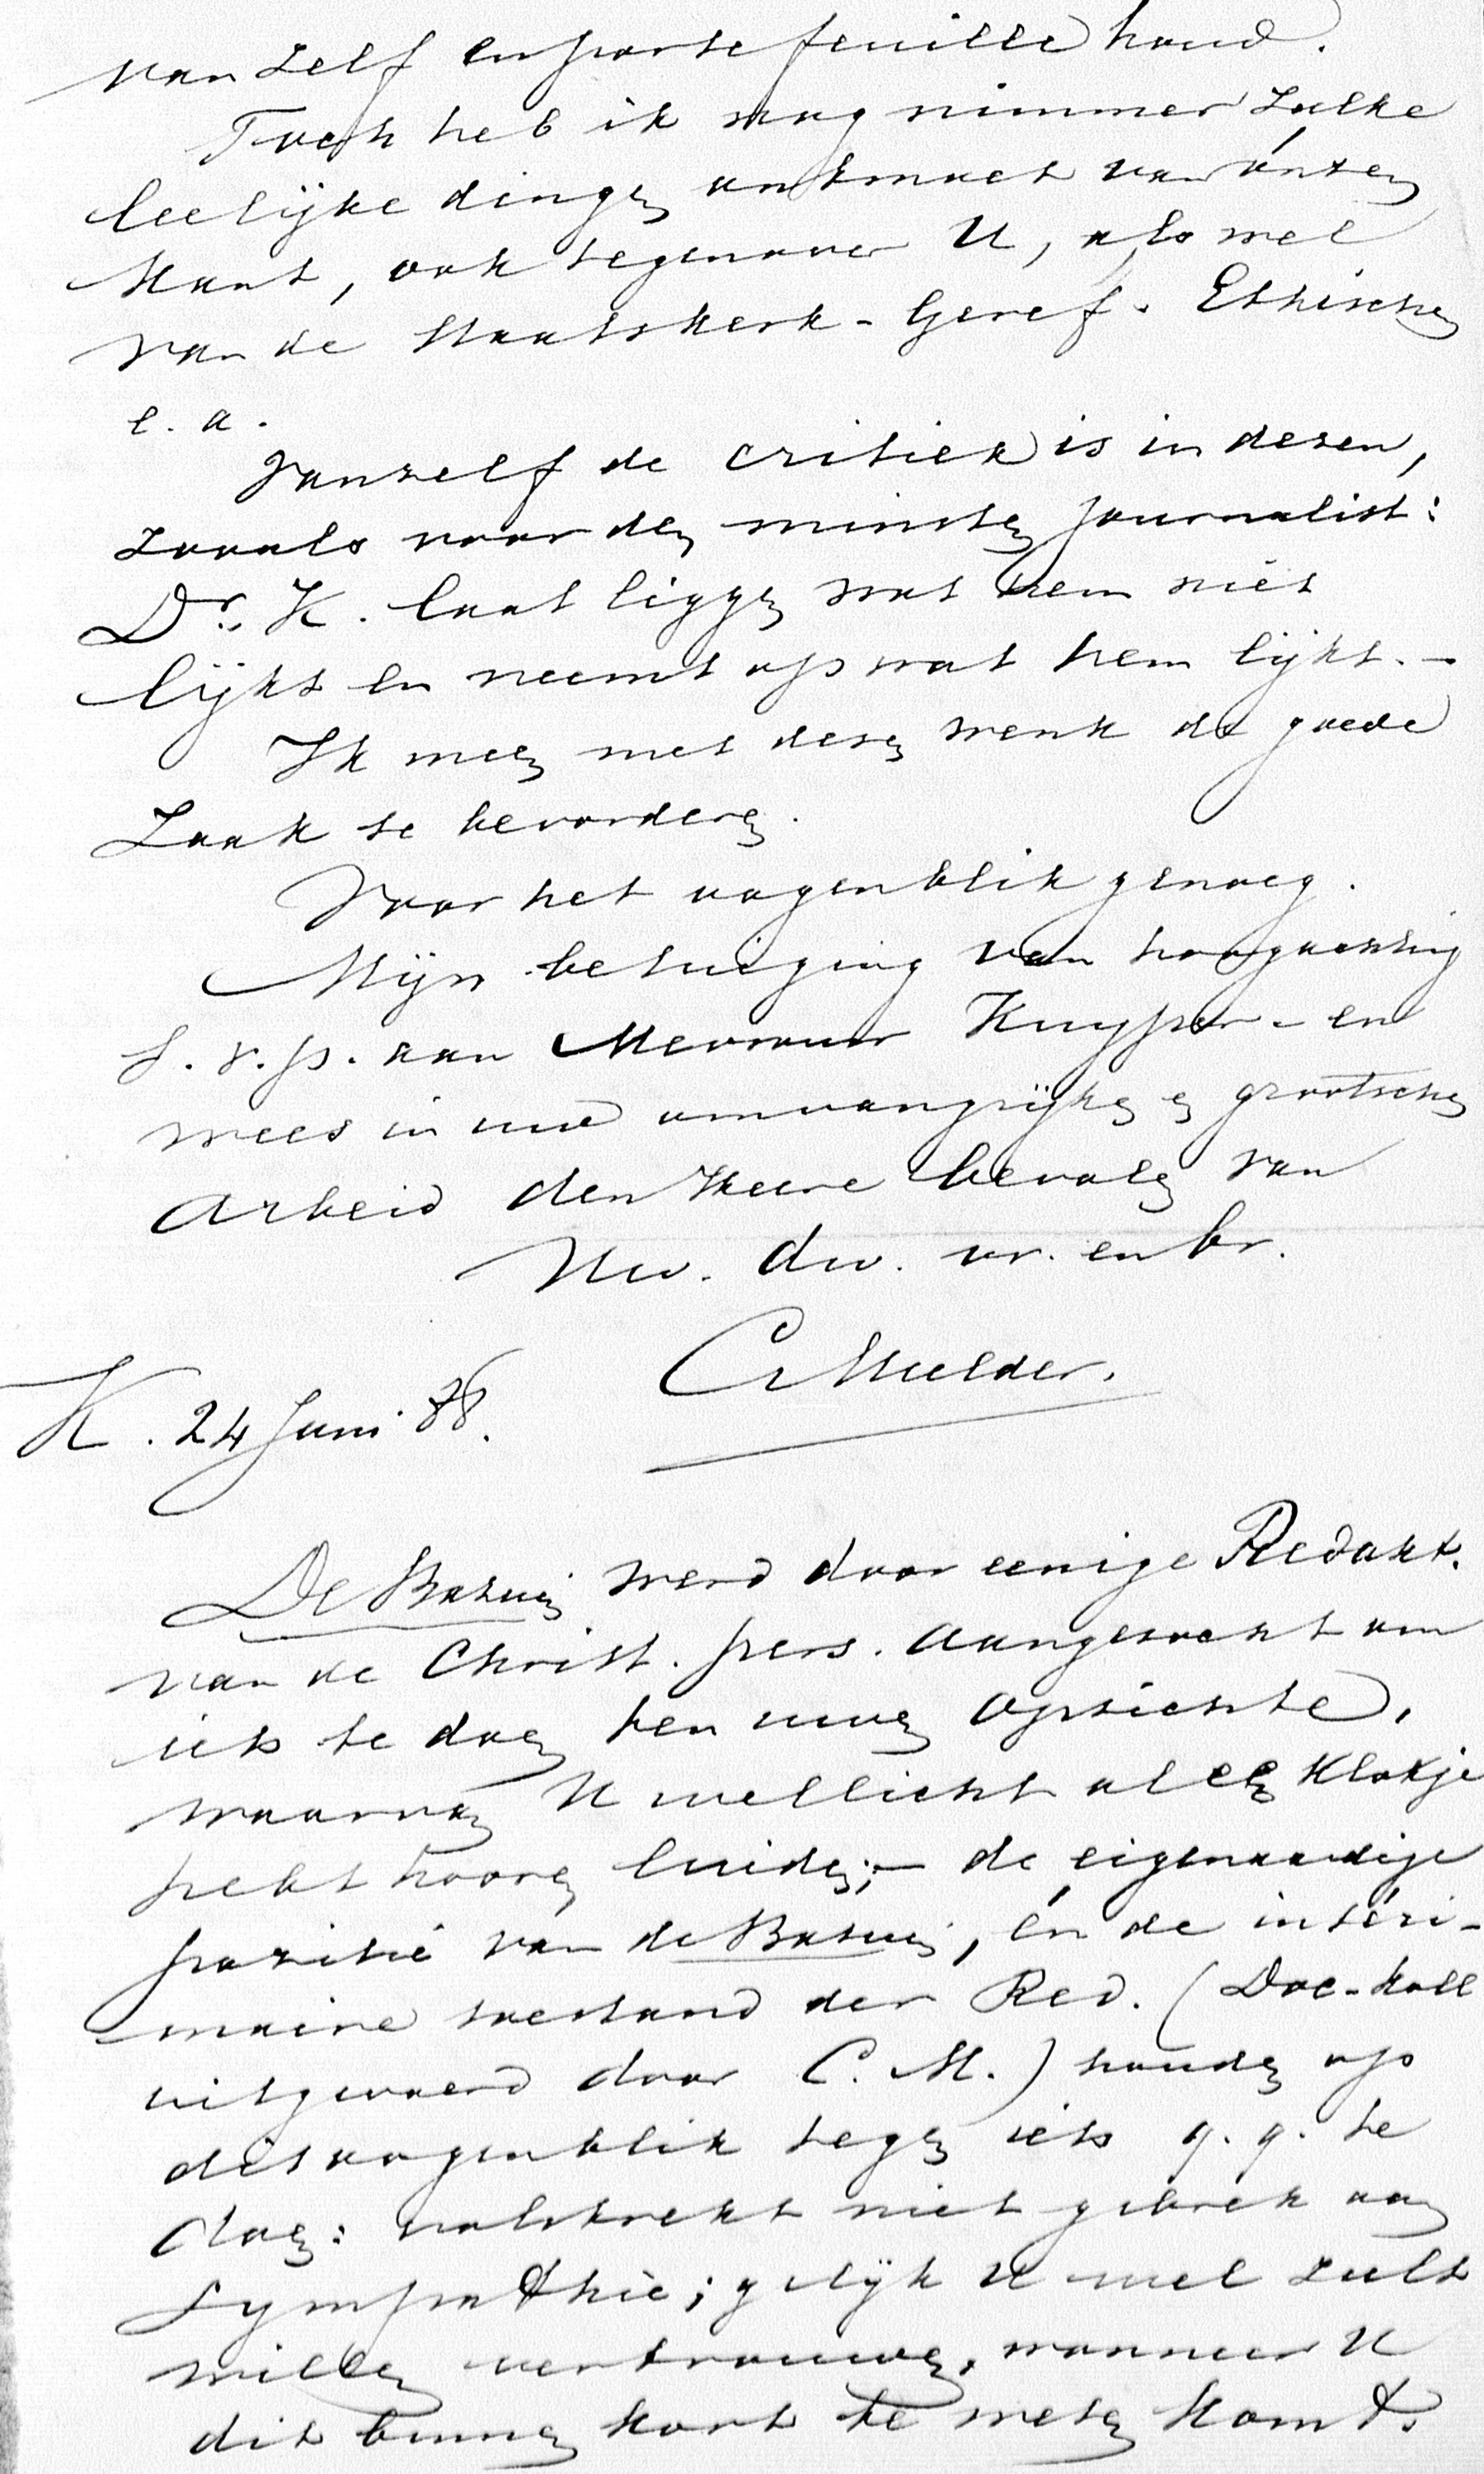 van zelf en portefeuille houd.
Toch heb ik nog nimmer zulke
leelijke dingen ontmoet van ónzen
kant, ook tegenover U, als wel
van de Staatskerk-Geref. Ethischen
e. a.
Vanzelf de critiek is in dezen,
zooals voor den minsten journalist:
Dr. K. laat liggen wat hem niet
lijkt en neemt op wat hem lijkt. -
Ik meen met dezen wenk de goede
Zaak te bevorderen.
Voor het oogenblik genoeg.
Mijn betuiging van hoogachting
s. v. p. aan Mevrouw Kuyper - en
wees in uw omvangrijken en grootschen
arbeid den Heere bevolen van
Uw. dw. vr. en br.
C Mulder.
K. 24 Juni 88.
De Bazuin werd door eenige Redakt.
van de Christ. pers. aangezocht om
iets te doen ten uwen opzichte,
waarvan U wellicht al een klokje
hebt hooren luiden; - de eigenaardige
positie van de Bazuin, én de intéri-
maire toestand der Red. (Doc-Koll
uitgevoerd door C. M.) houden op
dit oogenblik tegen iets q. q. te
doen: volstrekt niet gebrek aan
Sympathie; gelijk U wel zult
willen vertrouwen, wanneer U
dit binnen kort te weten komt.